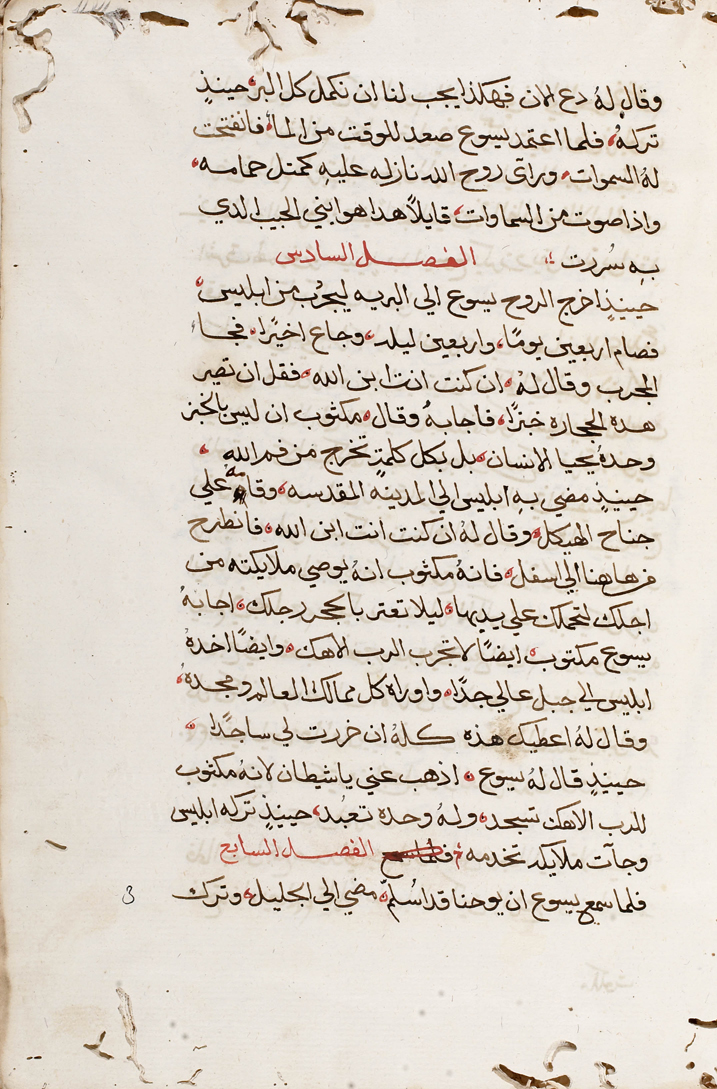 وقال له دع الان فهكذا يجب لنا ان نكمل كل البر حينيذٍ
تركهُ فلما اعتمد يسوع صعد للوقت من الما فانفتحت
لهُ السموات وراى روح الله نازله عليهِ كمتل حمامه
واذا صوت من السماوات قايلاً هدا هو ابني الحبيب الدي
بهِ سُررت الفصل السادس
حينيذٍ اخرج الروح يسوع الي البريه ليجرب من ابليس
فصام اربعين يومًا واربعين ليله وجاع اخيرًا فجا
المجرب وقال لهُ ان كنت انت ابن الله فقل ان تصير
هده الحجاره خبزًا فاجابهُ وقال مكتوب ان ليس بالخبز
وحدهُ يحيا الانسان بل بكل كلمةٍ تخرج من فم الله
حينيذٍ مضي بهِ ابليس الي المدينه المقدسه وقامه علي
جناح الهيكل وقال لهُ ان كنت انت ابن الله فانطرح
من هاهنا الي اسفل فانهُ مكتوب انهُ يوصي ملايكته من
اجلك لتحملك علي يديها ليلا تعتر بالحجر رجلك اجابهُ
يسوع مكتوب ايضًا لا تجرب الرب الاهك وايضًا اخدهُ
ابليس الي جبل عالي جدًا واوراه كل ممالك العالم ومجدهُ
وقال لهُ اعطيك هذه كلهُ ان خررت لي ساجدًا
حينيذٍ قال لهُ يسوع اذهب عني ياشيطان لانهُ مكتوب
للرب الاهك تسجد ولهُ وحده تعبُد حينيذٍ تركه ابليس
وجآت ملايكه تخدمه فلما سمع الفصل السابع
فلما سمع يسوع ان يوحنا قد اسُلمّ مضي الي الجليل وترك
3